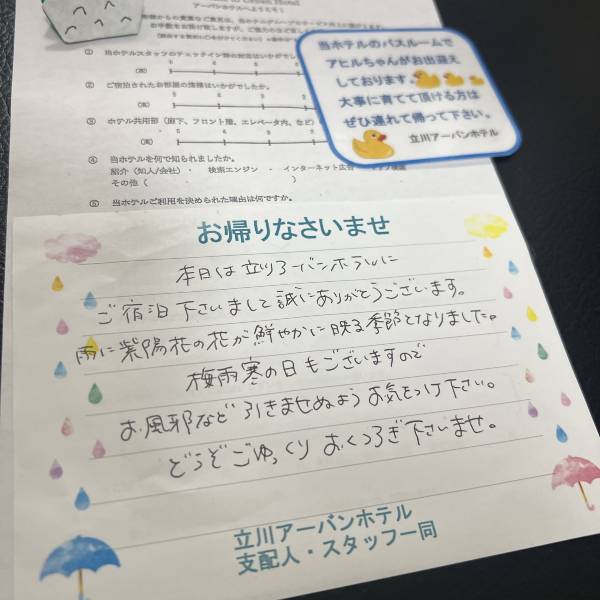 アーバンホテルへようこそ！
① 当ホテルスタッフのチェックイン時の対応はいかがでし
② ご宿泊されたお部屋の清掃はいかがでしたか。
③ ホテル共用部（廊下、フロント階、エレベータ内、など）
④ 当ホテルを何で知られましたか。
紹介（知人/会社）・ 検索エンジン ・ インターネット広告
その他（ ）
⑤ 当ホテルご利用を決められた理由は何ですか。
当ホテルのバスルームで
アヒルちゃんがお出迎え
しております。
大事に育てて頂ける方は
ぜひ連れて帰って下さい。
立川アーバンホテル
お帰りなさいませ
本日は立川アーバンホテルに
ご宿泊下さいまして誠にありがとうございます。
雨に紫陽花の花が鮮やかに映る季節となりました。
梅雨寒の日もございますので
お風邪など引きませぬようお気をつけ下さい。
どうぞごゆっくりおくつろぎ下さいませ。
立川アーバンホテル
支配人・スタッフ一同